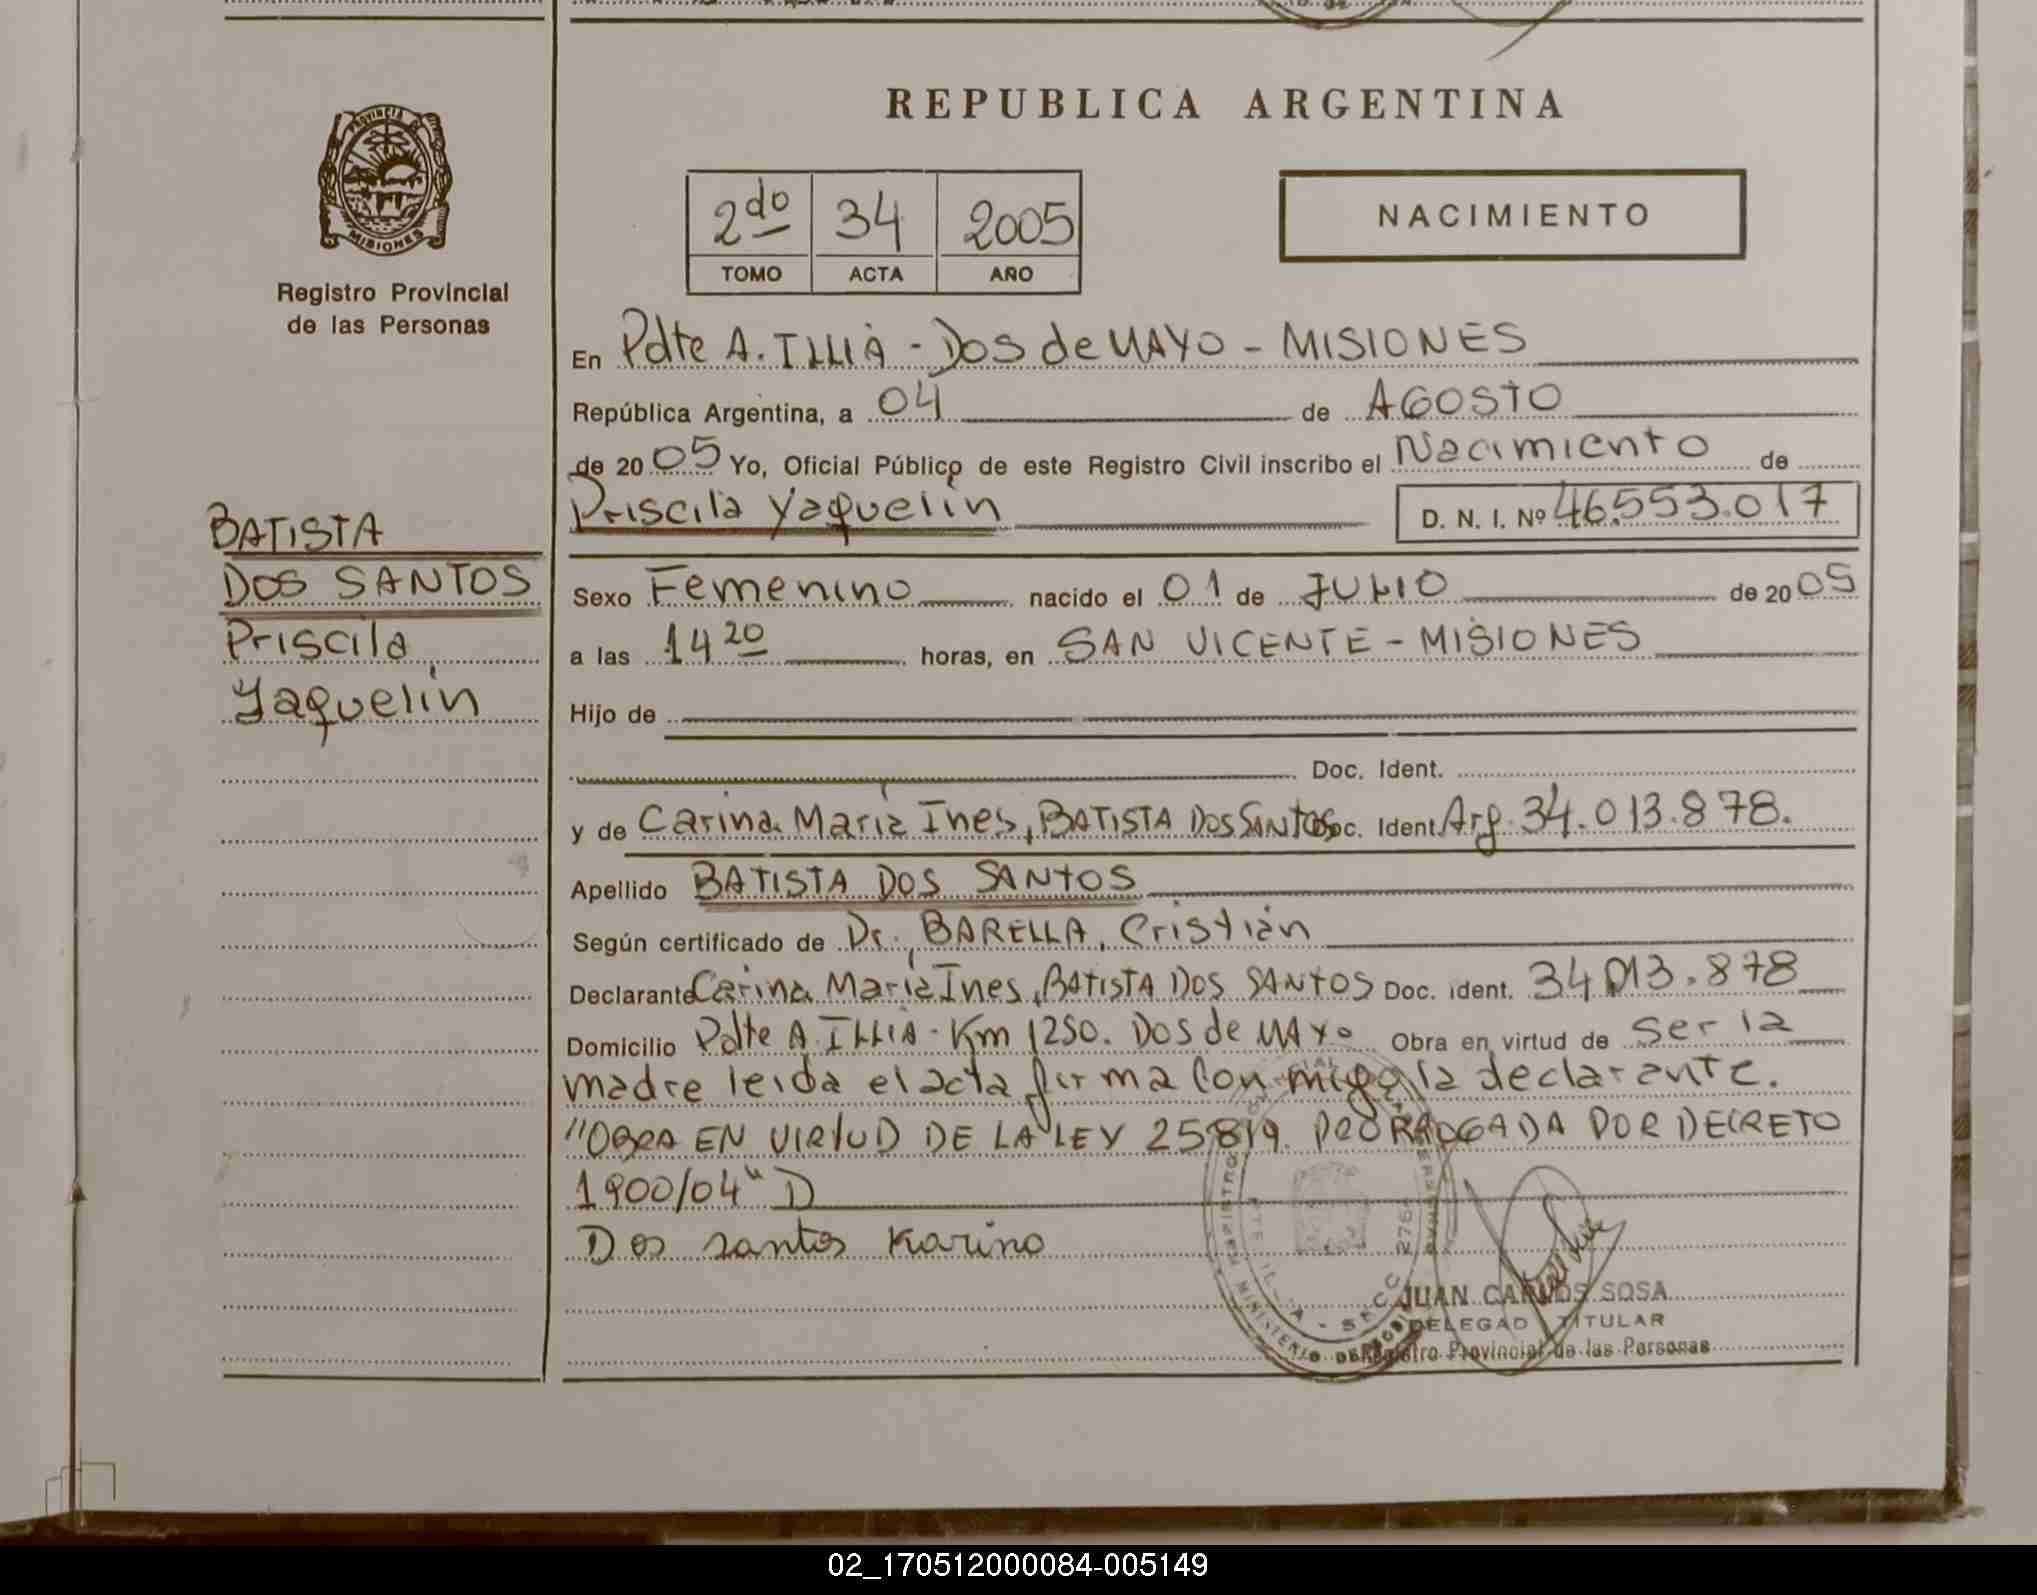 REPUBLICA ARGENTINA
PROVINCIA DE
MISIONES
Registro Provincial
de las Personas
2do 34 2005
TOMO ACTA AÑO
NACIMIENTO
En Pdte A. ILLIA - DOS de MAYO - MISIONES
República Argentina, a 04 de AGOSTO
de 2005 Yo, Oficial Público de este Registro Civil inscribo el Nacimiento de
Priscila Yaquelin D. N. I. Nº 46.553.017
BATISTA
DOS SANTOS
Priscila
Yaquelin
Sexo Femenino nacido el 01 de JULIO de 2005
a las 14 20 horas, en SAN VICENTE - MISIONES
Hijo de
Doc. Ident.
y de Carina Maria Ines, BATISTA DOS SANTOS Doc. Ident. Arg. 34.013.878.
Apellido BATISTA DOS SANTOS
Según certificado de Dr., BARELLA, Cristián
Declarante Carina Maria Ines, BATISTA DOS SANTOS Doc. ident. 34.013.878
Domicilio Pdte A. ILLIA - Km 1250. DOS de MAYO Obra en virtud de ser la
madre leida el acta firma con migo la declarante.
"OBRA EN VIRTUD DE LA LEY 25819. PRORROGADA POR DECRETO
1900/04" D
Dos santos Karino
JUAN CARLOS SOSA
DELEGADO TITULAR
Registro Provincial de las Personas
02_170512000084-005149